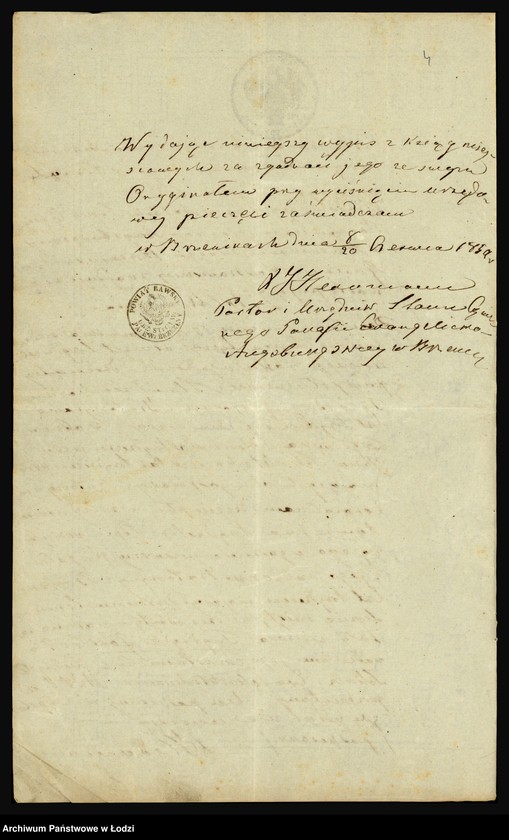 4
Wydając niniejszy wypis z Księg niesz-
scowych za zgodność jego ze swym
Oryginałem przy wyciśnięciu urzędo-
wej pieczęci zaświadczam
w Brzezinach dnia 8/20 Czerwca 18
Pastor i Urzędnik Stanu Cywil-
nego Parafii Ewangelicko-
Augsburgskiej w Brzezi
POWIAT RAWSKI
Archiwum Państwowe w Łodzi